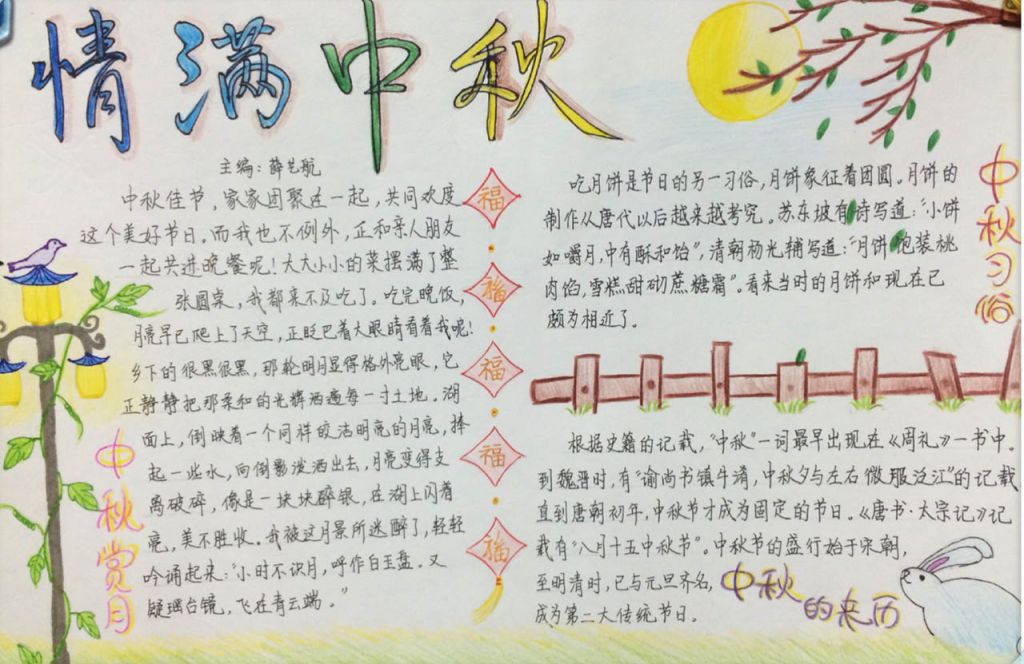 情满中秋
主编：薛艺航
中秋佳节，家家团聚在一起，共同欢度
这个美好节日。而我也不例外，正和亲人朋友
一起共进晚餐呢！大大小小的菜摆满了整
张圆桌，我都来不及吃了。吃完晚饭，
月亮早已爬上了天空，正眨巴着大眼睛看着我呢！
乡下的很黑很黑，那轮明月显得格外亮眼，它
正静静把那柔和的光辉洒遍每一寸土地。湖
面上，倒映着一个同样皎洁明亮的月亮，捧
起一些水，向倒影泼洒出去，月亮变得支
离破碎，像是一块块碎银，在湖上闪着
亮，美不胜收。我被这月景所迷醉了，轻轻
吟诵起来：“小时不识月，呼作白玉盘。又
疑瑶台镜，飞在青云端。”
中秋赏月
福
福
福
福
福
吃月饼是节日的另一习俗，月饼象征着团圆。月饼的
制作从唐代以后越来越考究。苏东坡有诗写道：“小饼
如嚼月，中有酥和饴”，清朝杨光辅写道：“月饼饱装桃
肉馅，雪糕甜砌蔗糖霜”。看来当时的月饼和现在已
颇为相近了。
中秋习俗
根据史籍的记载，“中秋”一词最早出现在《周礼》一书中。
到魏晋时，有“谕尚书镇牛淆，中秋夕与左右微服泛江”的记载
直到唐朝初年，中秋节才成为固定的节日。《唐书·太宗记》记
载有“八月十五中秋节”。中秋节的盛行始于宋朝，
至明清时，已与元旦齐名，
成为第二大传统节日。
中秋的来历